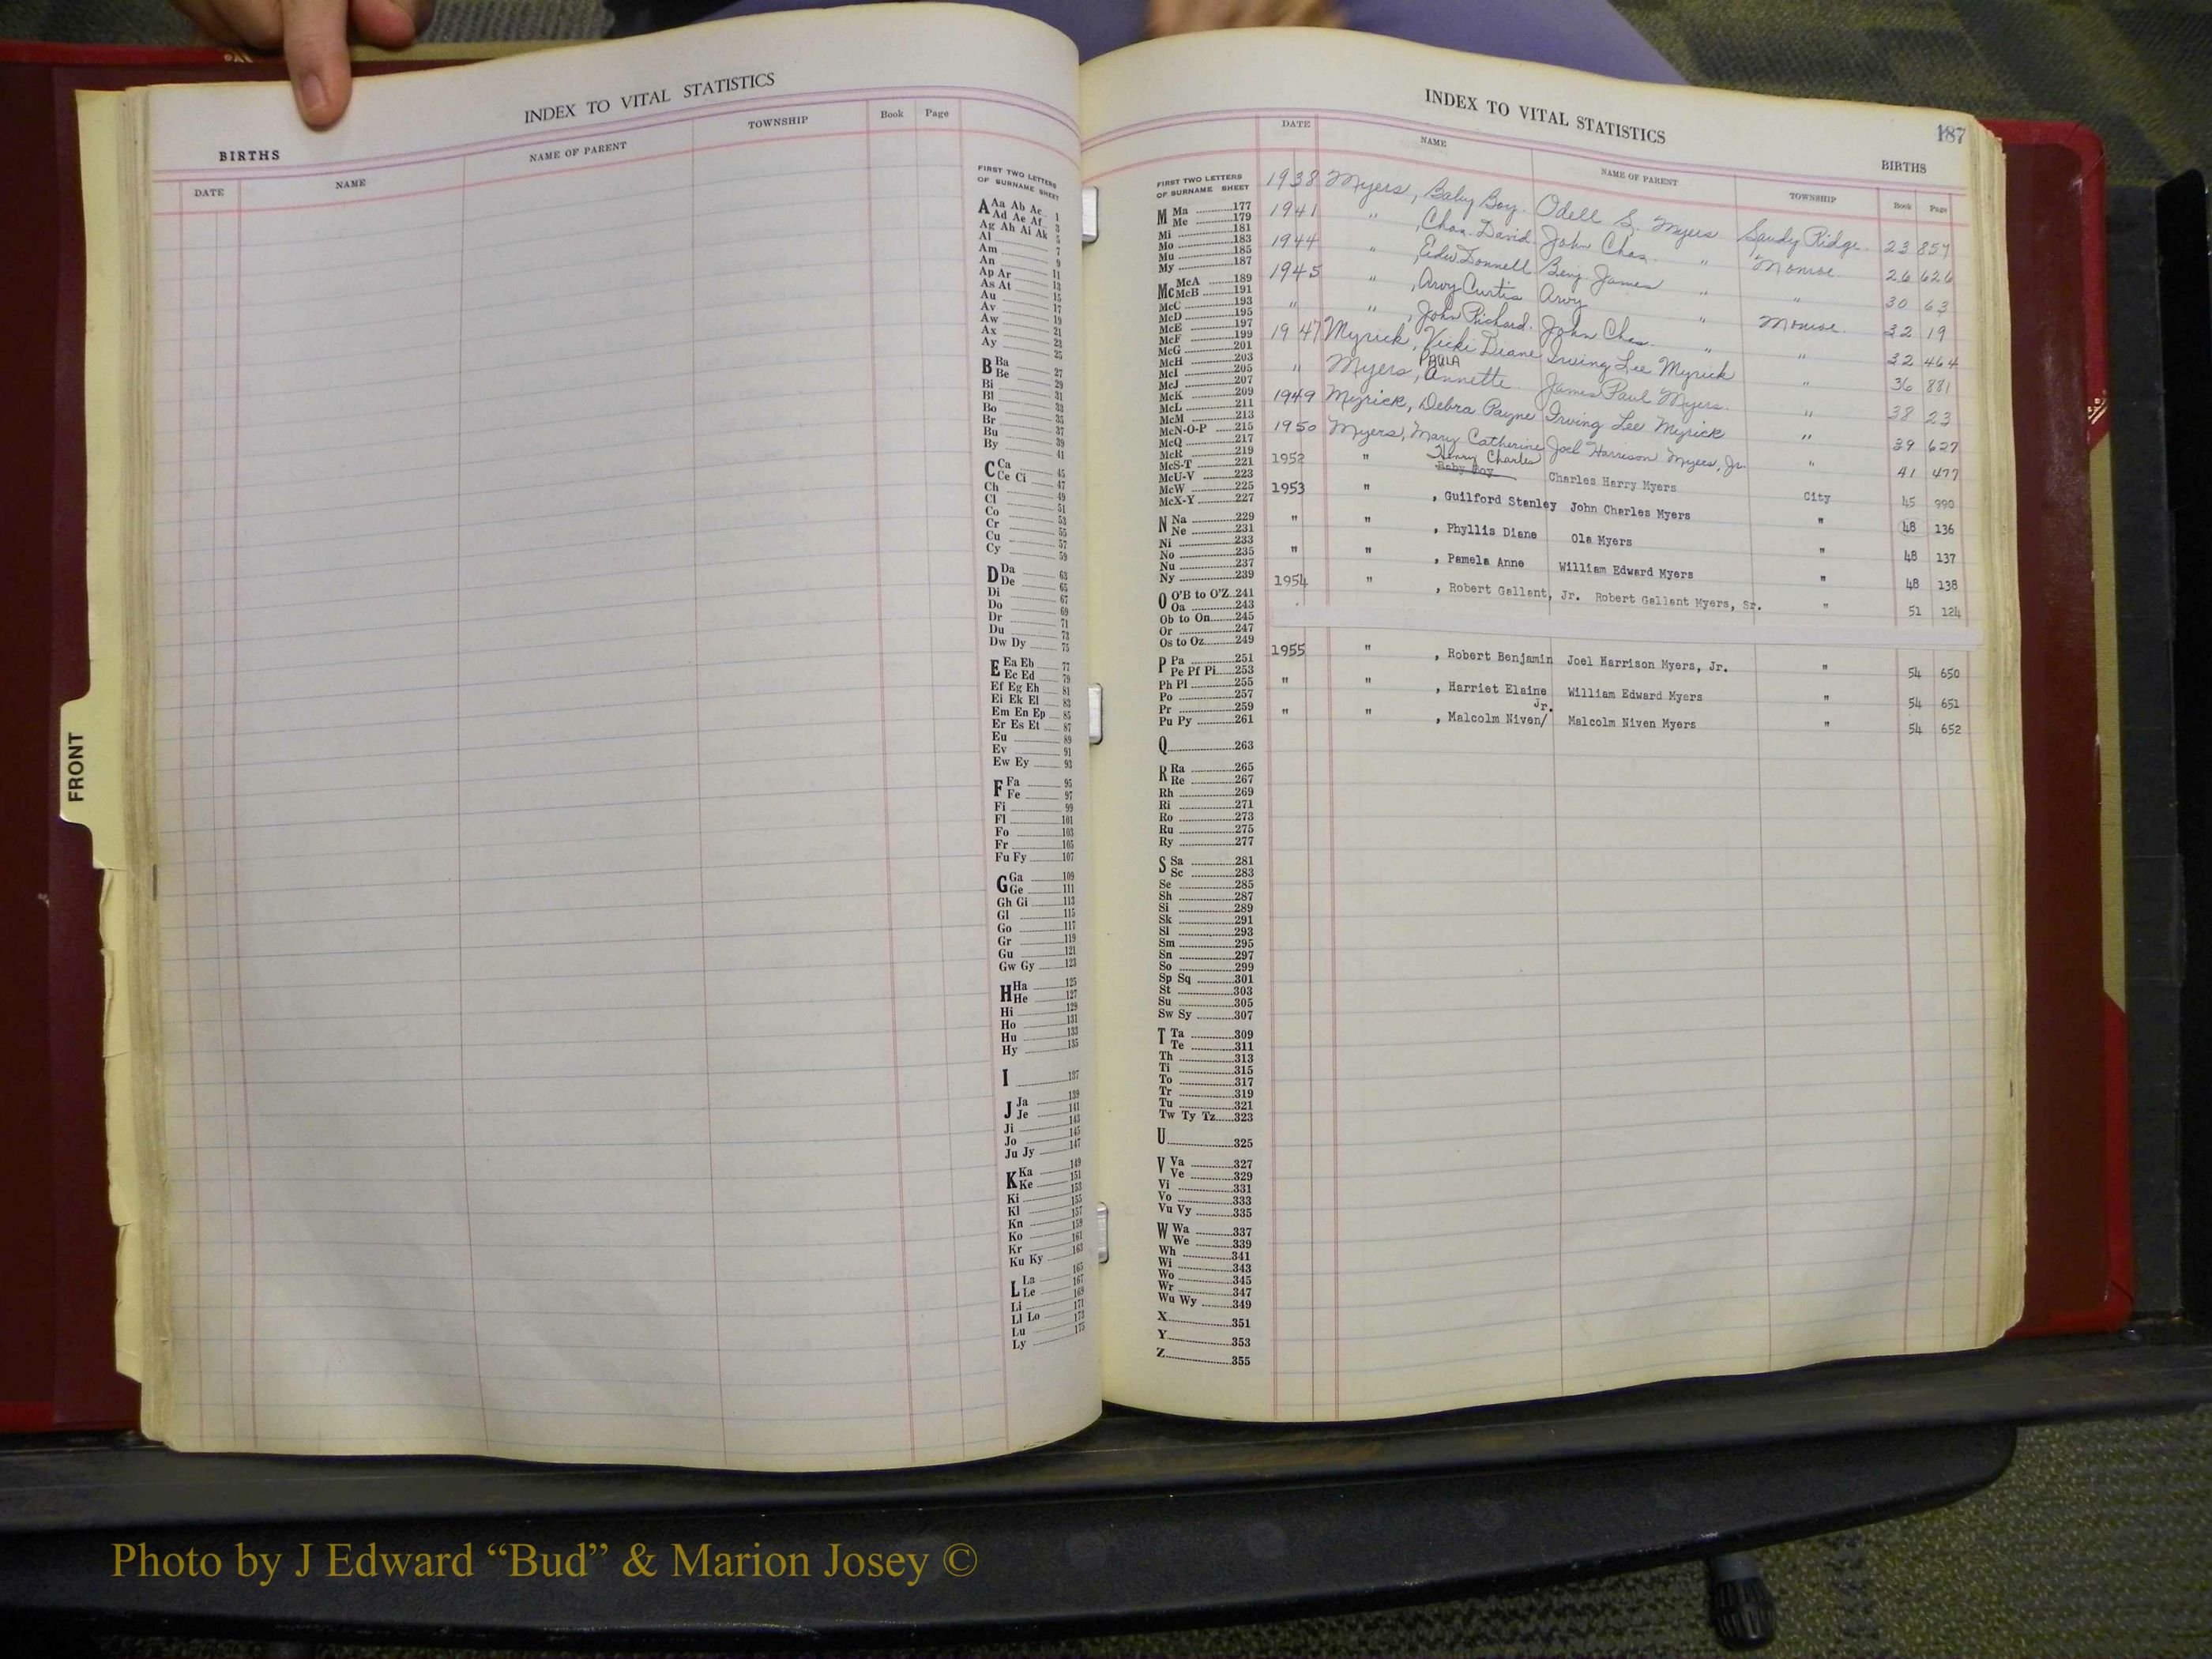 FRONT
INDEX TO VITAL STATISTICS
BIRTHS
DATE NAME NAME OF PARENT TOWNSHIP Book Page
FIRST TWO LETTERS
OF SURNAME SHEET
A Aa Ab Ac 1
Ad Ae Af 3
Ag Ah Ai Ak 5
Al
Am 7
An 9
Ap Ar 11
As At 13
Au 15
Av 17
Aw 19
Ax 21
Ay 23
25
B Ba 27
Be 29
Bi 31
Bl 33
Bo 35
Br 37
Bu 39
By 41
C Ca 45
Ce Ci 47
Ch 49
Cl 51
Co 53
Cr 55
Cu 57
Cy 59
D Da 63
De 65
Di 67
Do 69
Dr 71
Du 73
Dw Dy 75
E Ea Eb 77
Ec Ed 79
Ef Eg Eh 81
Ei Ek El 83
Em En Ep 85
Er Es Et 87
Eu 89
Ev 91
Ew Ey 93
F Fa 95
Fe 97
Fi 99
Fl 101
Fo 103
Fr 105
Fu Fy 107
G Ga 109
Ge 111
Gh Gi 113
Gl 115
Go 117
Gr 119
Gu 121
Gw Gy 123
H Ha 125
He 127
Hi 129
Ho 131
Hu 133
Hy 135
I 137
J Ja 139
Je 141
Ji 143
Jo 145
Ju Jy 147
K Ka 149
Ke 151
Ki 153
Kl 155
Kn 157
Ko 159
Kr 161
Ku Ky 163
L La 165
Le 167
Li 169
Ll Lo 171
Lu 173
Ly 175
INDEX TO VITAL STATISTICS
187
BIRTHS
DATE NAME NAME OF PARENT TOWNSHIP Book Page
FIRST TWO LETTERS
OF SURNAME SHEET
M Ma 177
Me 179
Mi 181
Mo 183
Mu 185
My 187
Mc McA 189
McB 191
McC 193
McD 195
McE 197
McF 199
McG 201
McH 203
McI 205
McJ 207
McK 209
McL 211
McM 213
McN-O-P 215
McQ 217
McR 219
McS-T 221
McU-V 223
McW 225
McX-Y 227
N Na 229
Ne 231
Ni 233
No 235
Nu 237
Ny 239
O O'B to O'Z 241
Oa 243
Ob to On 245
Or 247
Os to Oz 249
P Pa 251
Pe Pf Pi 253
Ph Pl 255
Po 257
Pr 259
Pu Py 261
Q 263
R Ra 265
Re 267
Rh 269
Ri 271
Ro 273
Ru 275
Ry 277
S Sa 281
Sc 283
Se 285
Sh 287
Si 289
Sk 291
Sl 293
Sm 295
Sn 297
So 299
Sp Sq 301
St 303
Su 305
Sw Sy 307
T Ta 309
Te 311
Th 313
Ti 315
To 317
Tr 319
Tu 321
Tw Ty Tz 323
U 325
V Va 327
Ve 329
Vi 331
Vo 333
Vu Vy 335
W Wa 337
We 339
Wh 341
Wi 343
Wo 345
Wr 347
Wu Wy 349
X 351
Y 353
Z 355
1938 Myers, Baby Boy. Odell S. Myers Sandy Ridge. 23 857
1941 " , Chas. David. John Chas. " Monroe. 26 626
1944 " , Edw Donnell Benj. James " " 30 63
1945 " , Arvy Curtis Arvy " Monroe. 32 19
" " , John Richard. John Chas. " " 32 464
1947 Myrick, Vicki Diane Irving Lee Myrick " 36 881
" Myers, PAULA Annette. James Paul Myers. " 38 23
1949 Myrick, Debra Payne Irving Lee Myrick " 39 627
1950 Myers, Mary Catherine Joel Harrison Myers, Jr. " 41 477
1952 " Henry Charles Baby Boy Charles Harry Myers City 45 990
1953 " , Guilford Stanley John Charles Myers " 48 136
" " , Phyllis Diane Ola Myers " 48 137
" " , Pamela Anne William Edward Myers " 48 138
1954 " , Robert Gallant, Jr. Robert Gallant Myers, Sr. " 51 124
1955 " , Robert Benjamin Joel Harrison Myers, Jr. " 54 650
" " , Harriet Elaine William Edward Myers " 54 651
" " , Malcolm Niven/ Jr. Malcolm Niven Myers " 54 652
Photo by J Edward “Bud” & Marion Josey ©